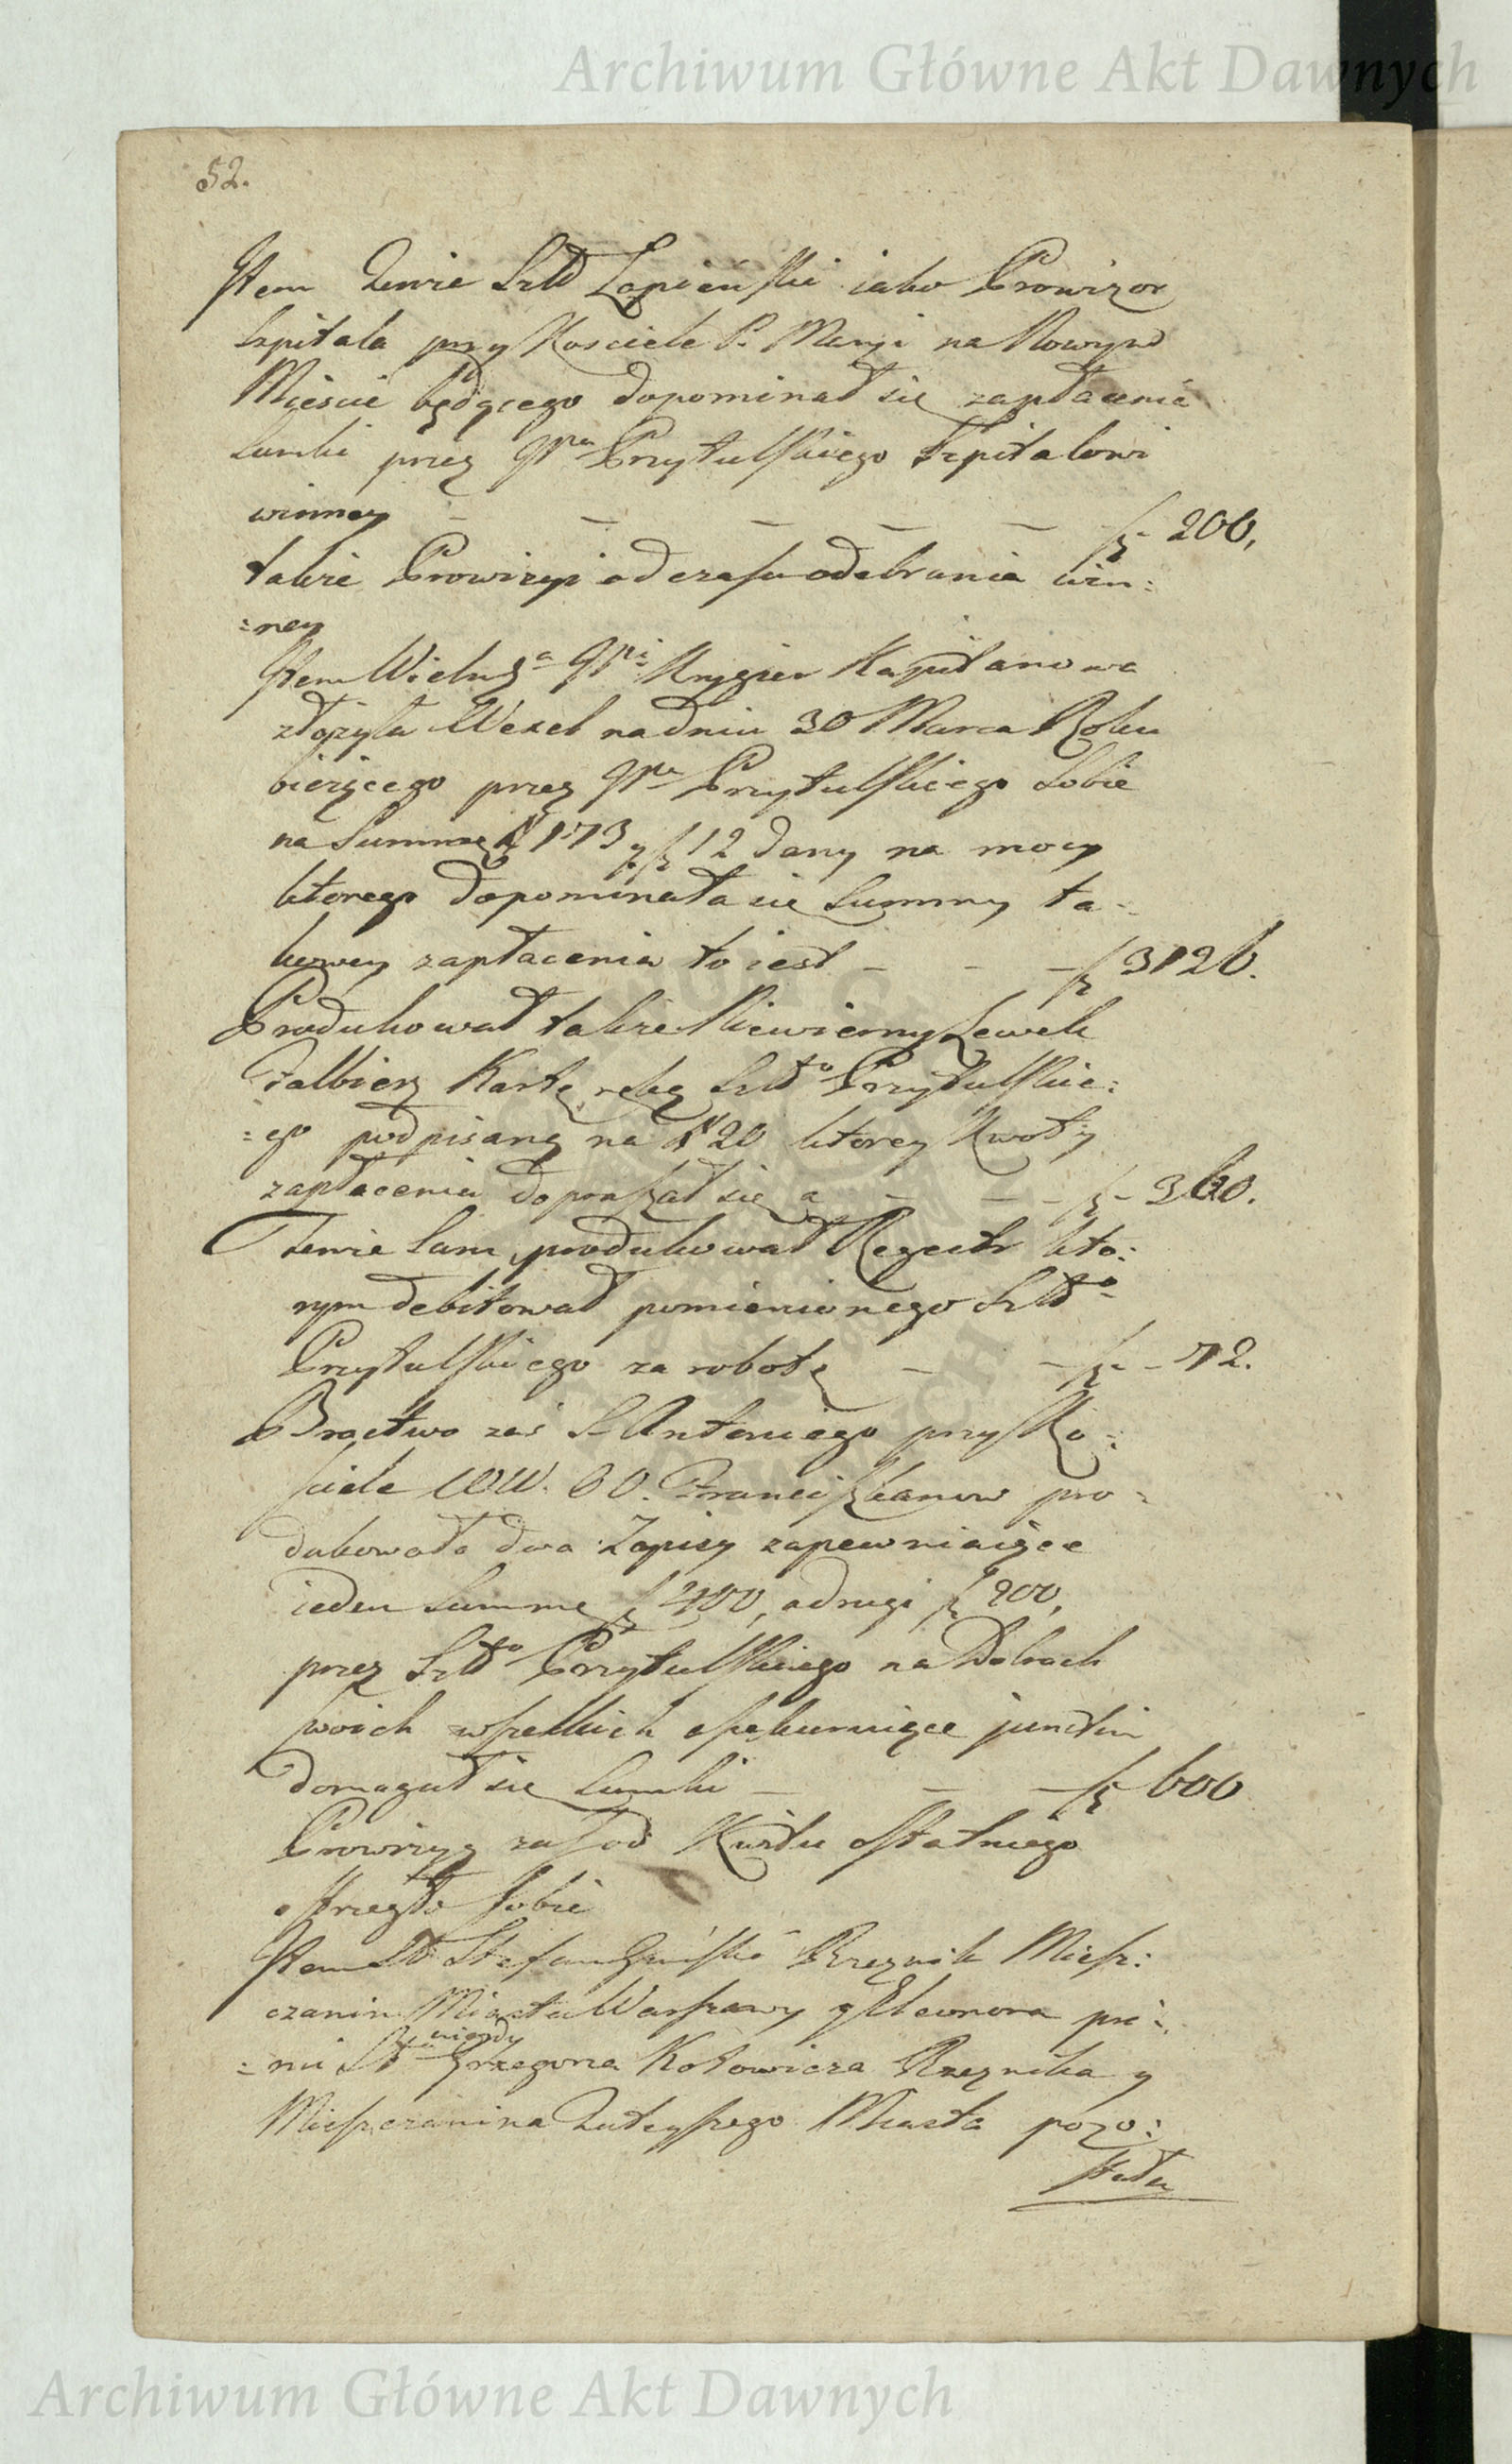 Archiwum Główne Akt Dawnych
52.
Item Tenże Szltt Łapieński iako Prowizor
Szpitala przy Kosciele P. Maryi na Nowym
Mieście będącego dopominał się zapłacenia
Sumki przez Przytulskiego Szpitalowi
winney – – – – – f 200,
także Prowizyi od czasu odebrania win:
:ney
Item Krygier Kapitanowa
złożyła Wexel na dniu 30 Marca Roku
bieżącego przez Przytulskiego Sobie
na Summę 173 f 12 dany na mocy
ktorego dopominała się Summy ta:
kowey zapłacenia to iest – – – f 3126.
Produkował także Niewierny Lewek
Falbierz Kartę ręką Szltto Przytulskie:
:go podpisaną na 20 ktorey Kwoty
zapłacenia dopraszał się a – – – f – 360.
Tenże Sam produkował Regestr kto:
rym debitował pomienionego Szltto
Przytulskiego za robotę – – f – – 72.
Bractwo zaś S Antoniego przy Ko:
sciele WW. OO. Franciszkanow pro:
dukowało dwa Zapisy zapewniaiące
ieden Summę f 400, a drugi f 200,
przez Szltto Przytulskiego na Dobrach
swoich wszelkich junctim
domagał się Sumki – – – f 600
Prowizyą zaś od Kwitu ostatniego
ostrzegło sobie
Item Stefan Rzeznik Miesz:
czanin Miasta Warszawy y Eleonora
niegdy
Grzegorza Kotowicza Rzeznika y
Mieszczanina Tuteyszego Miasta pozo:
stała
Archiwum Główne Akt Dawnych